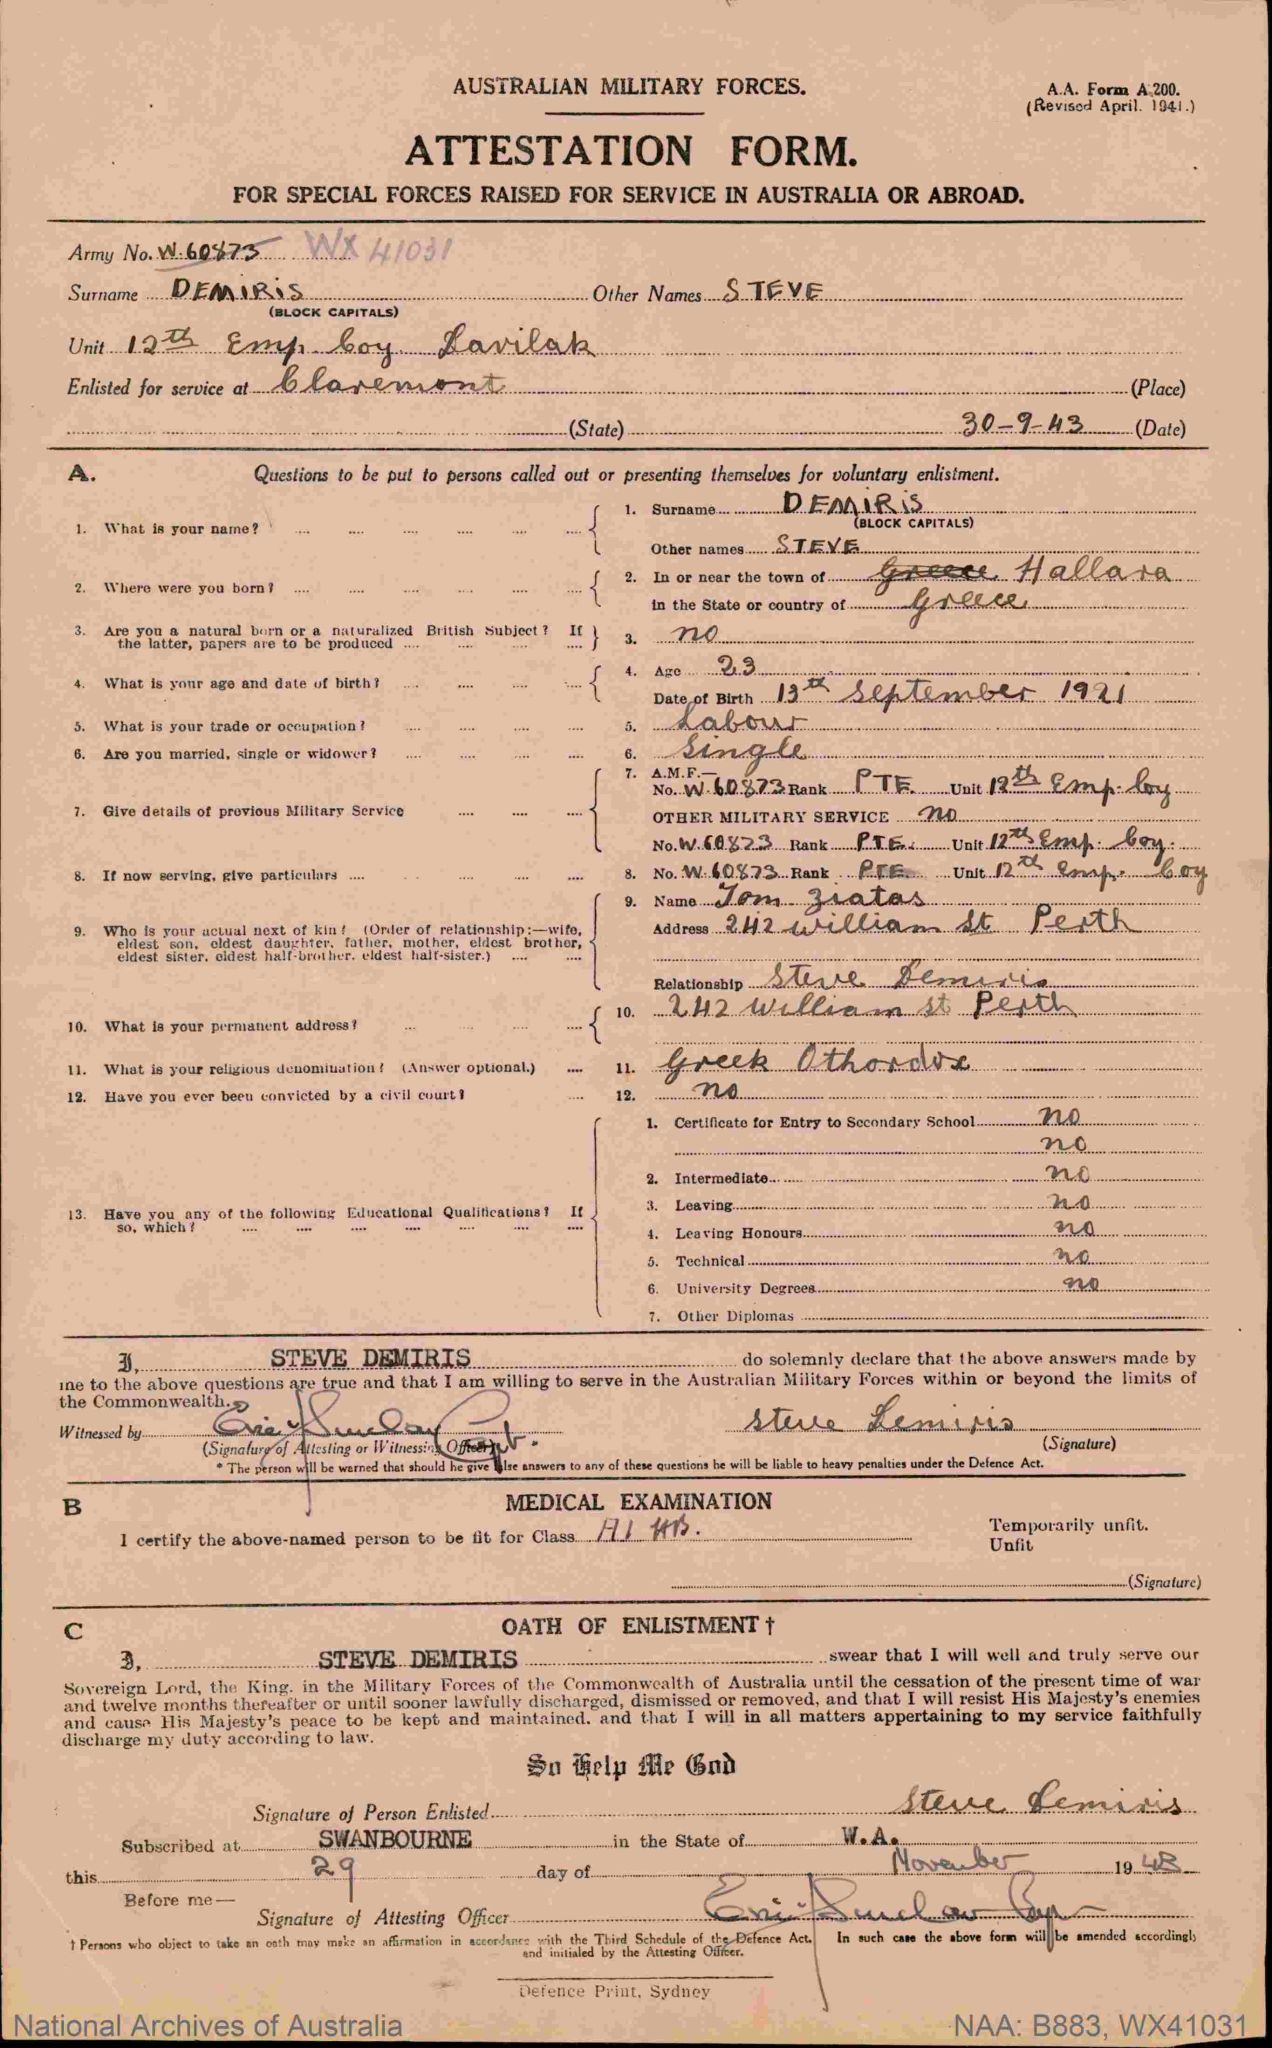 AUSTRALIAN MILITARY FORCES.
A.A. Form A.200.
(Revised April. 1941.)
ATTESTATION FORM.
FOR SPECIAL FORCES RAISED FOR SERVICE IN AUSTRALIA OR ABROAD.
Army No. W.60873 WX 41031
Surname DEMIRIS Other Names STEVE
(BLOCK CAPITALS)
Unit 12th Emp. Coy Karilak
Enlisted for service at Claremont (Place)
(State) 30-9-43 (Date)
A. Questions to be put to persons called out or presenting themselves for voluntary enlistment.
1. What is your name? 1. Surname DEMIRIS
(BLOCK CAPITALS)
Other names STEVE
2. Where were you born? 2. In or near the town of Greece Hallara
in the State or country of Greece
3. Are you a natural born or a naturalized British Subject? If
the latter, papers are to be produced 3. no
4. What is your age and date of birth? 4. Age 23
Date of Birth 13th September 1921
5. What is your trade or occupation? 5. Labour
6. Are you married, single or widower? 6. Single
7. Give details of previous Military Service 7. A.M.F.—
No. W.60873 Rank PTE. Unit 12th Emp. Coy
OTHER MILITARY SERVICE no
No. W.60873 Rank PTE. Unit 12th Emp. Coy.
8. If now serving, give particulars 8. No. W.60873 Rank PTE Unit 12th Emp. Coy
9. Who is your actual next of kin? (Order of relationship:—wife,
eldest son, eldest daughter, father, mother, eldest brother,
eldest sister, eldest half-brother, eldest half-sister.)
9. Name Tom Ziatas
Address 242 William St Perth
Relationship Steve Demiris
10. What is your permanent address? 10. 242 William St Perth
11. What is your religious denomination? (Answer optional.) 11. Greek Othordox
12. Have you ever been convicted by a civil court? 12. no
13. Have you any of the following Educational Qualifications? If
so, which?
1. Certificate for Entry to Secondary School no
no
2. Intermediate no
3. Leaving no
4. Leaving Honours no
5. Technical no
6. University Degrees no
7. Other Diplomas
I, STEVE DEMIRIS do solemnly declare that the above answers made by
me to the above questions are true and that I am willing to serve in the Australian Military Forces within or beyond the limits of
the Commonwealth.
Witnessed by Steve Demiris
(Signature of Attesting or Witnessing Officer) (Signature)
* The person will be warned that should he give false answers to any of these questions he will be liable to heavy penalties under the Defence Act.
B MEDICAL EXAMINATION
I certify the above-named person to be fit for Class A1 Temporarily unfit.
Unfit
(Signature)
C OATH OF ENLISTMENT †
I, STEVE DEMIRIS swear that I will well and truly serve our
Sovereign Lord, the King, in the Military Forces of the Commonwealth of Australia until the cessation of the present time of war
and twelve months thereafter or until sooner lawfully discharged, dismissed or removed, and that I will resist His Majesty's enemies
and cause His Majesty's peace to be kept and maintained, and that I will in all matters appertaining to my service faithfully
discharge my duty according to law.
So Help Me God
Signature of Person Enlisted Steve Demiris
Subscribed at SWANBOURNE in the State of W.A.
this 29 day of November 1943
Before me—
Signature of Attesting Officer
† Persons who object to take an oath may make an affirmation in accordance with the Third Schedule of the Defence Act. In such case the above form will be amended accordingly
and initialed by the Attesting Officer.
Defence Print, Sydney
National Archives of Australia NAA: B883, WX41031